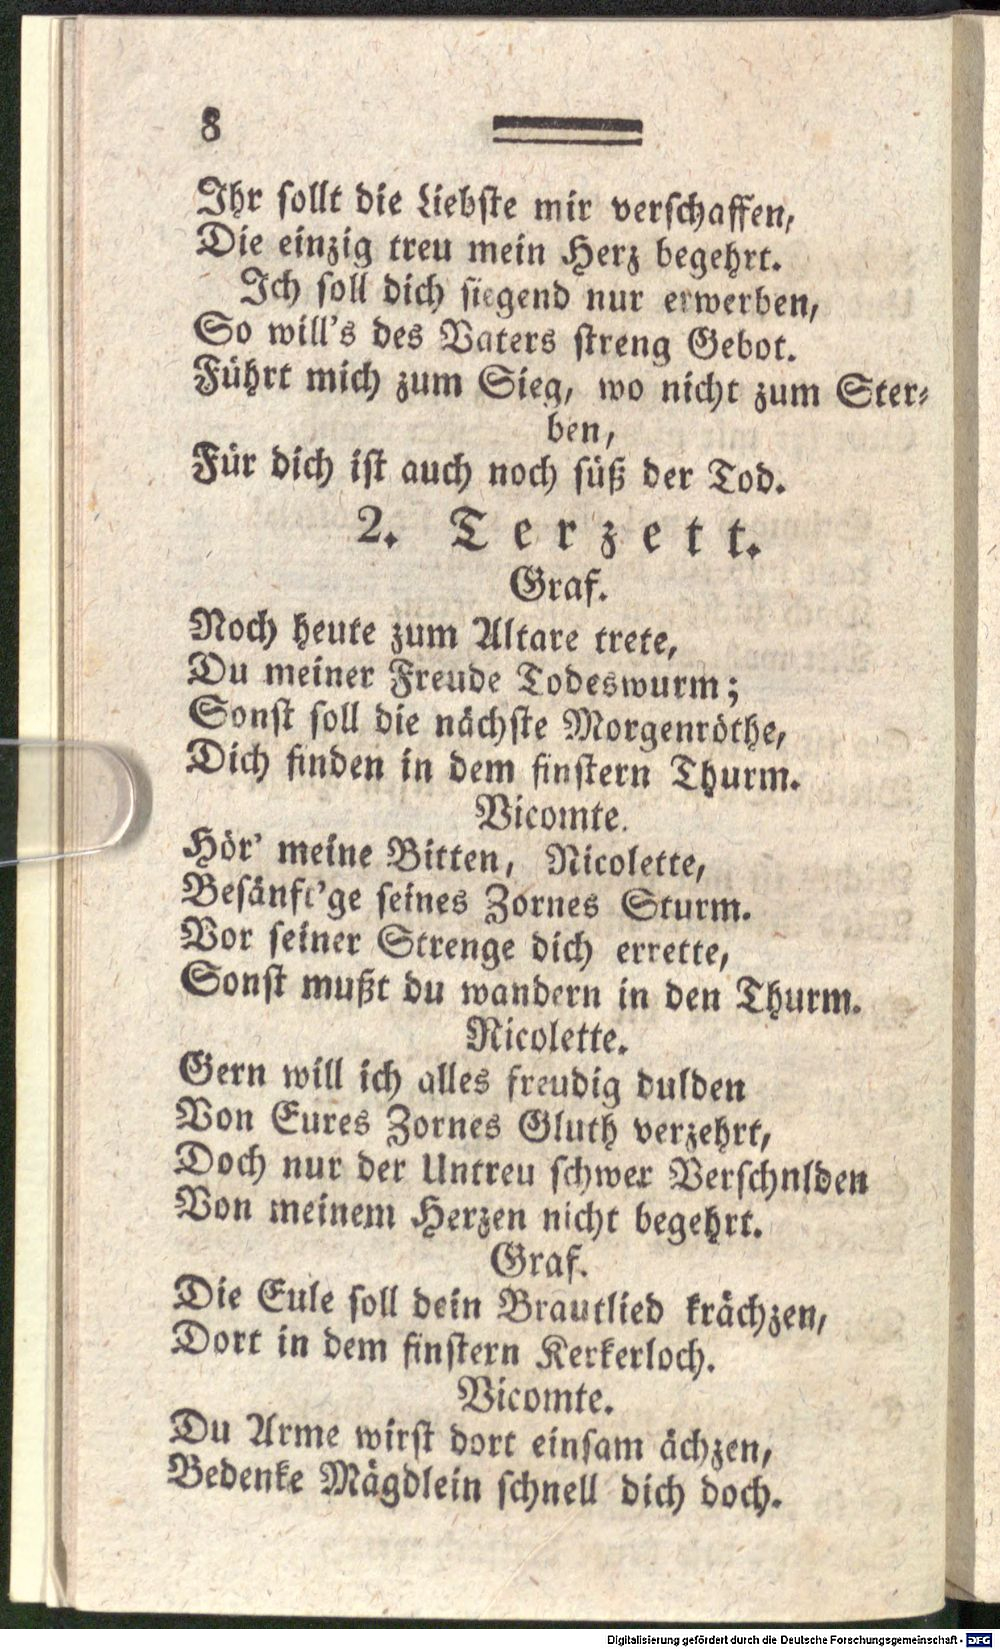 8
Ihr sollt die Liebste mir verschaffen,
Die einzig treu mein Herz begehrt.
Ich soll dich siegend nur erwerben,
So will's des Vaters streng Gebot.
Führt mich zum Sieg, wo nicht zum Ster-
ben,
Für dich ist auch noch süß der Tod.
2. Terzett.
Graf.
Noch heute zum Altare trete,
Du meiner Freude Todeswurm;
Sonst soll die nächste Morgenröthe,
Dich finden in dem finstern Thurm.
Vicomte.
Hör' meine Bitten, Nicolette,
Besänft'ge seines Zornes Sturm.
Vor seiner Strenge dich errette,
Sonst mußt du wandern in den Thurm.
Nicolette.
Gern will ich alles freudig dulden
Von Eures Zornes Gluth verzehrt,
Doch nur der Untreu schwer Verschnlden
Von meinem Herzen nicht begehrt.
Graf.
Die Eule soll dein Brautlied krächzen,
Dort in dem finstern Kerkerloch.
Vicomte.
Du Arme wirst dort einsam ächzen,
Bedenke Mägdlein schnell dich doch.
Digitalisierung gefördert durch die Deutsche Forschungsgemeinschaft - DFG